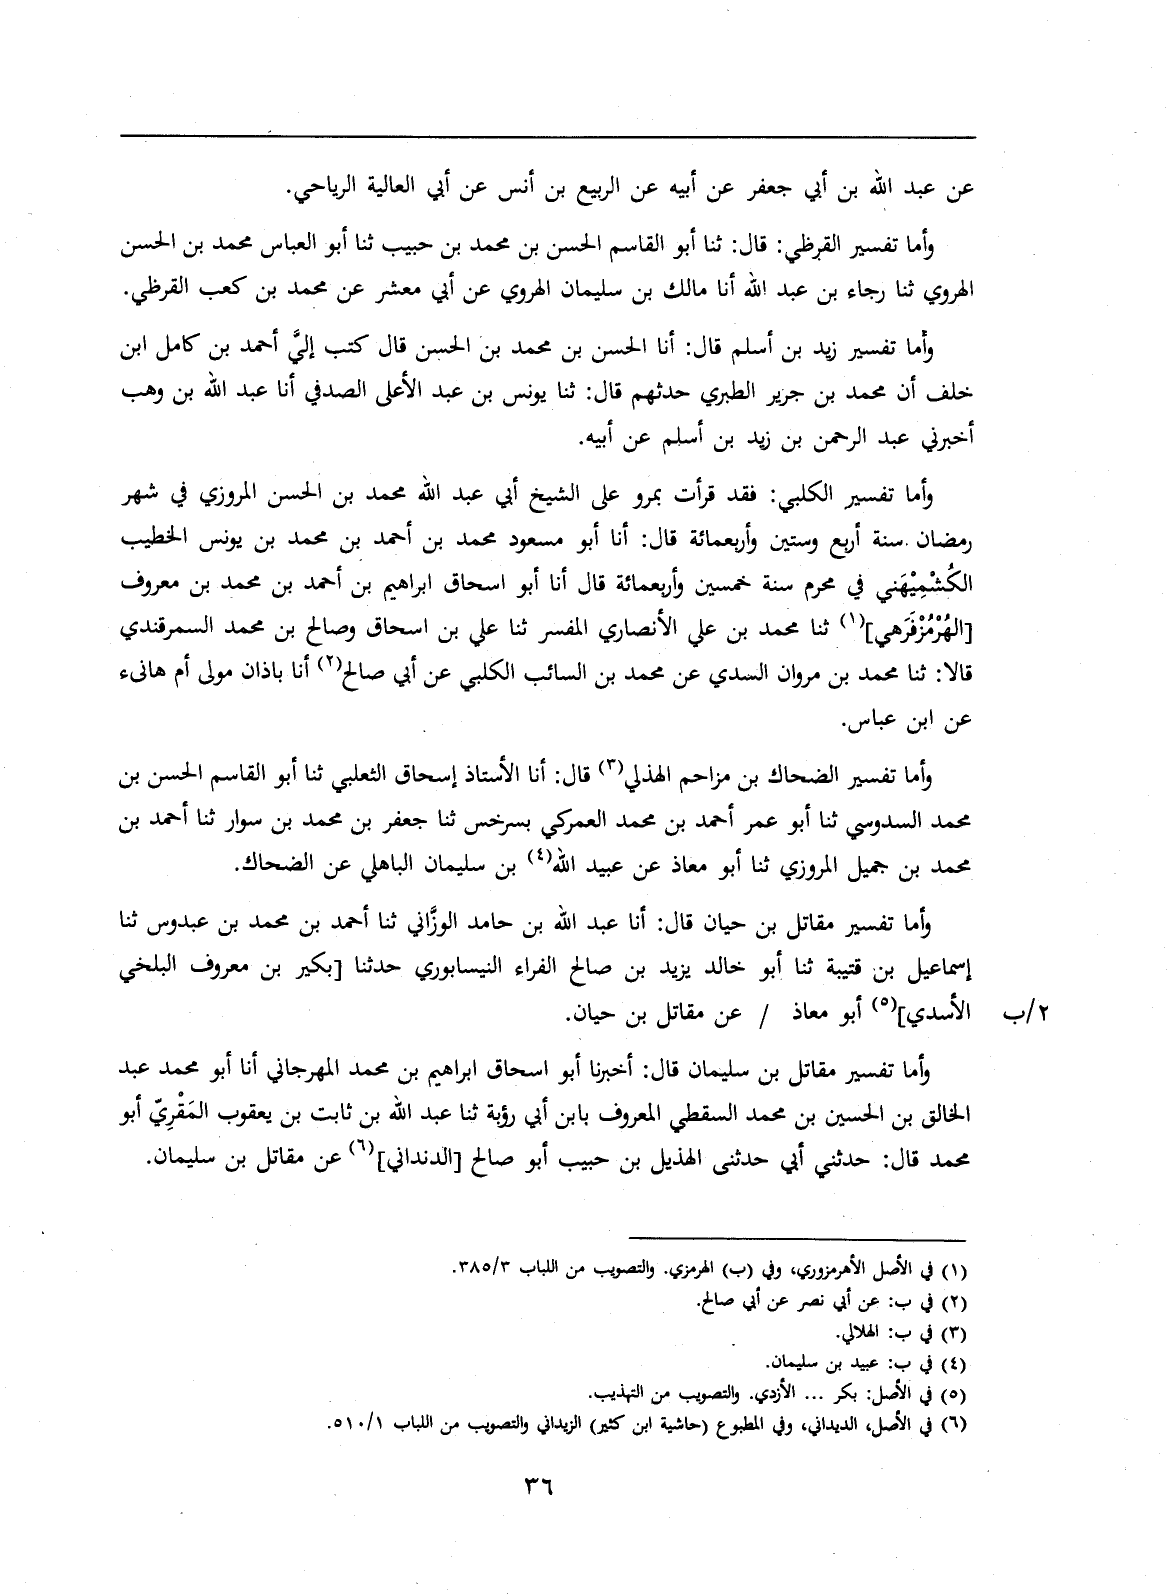 عن عبد الله بن أبي جعفر عن أبيه عن الربيع بن أنس عن أبي العالية الرياحي.
وأما تفسير القرظي: قال: ثنا أبو القاسم الحسن بن محمد بن حبيب ثنا أبو العباس محمد بن الحسن
الهروي ثنا رجاء بن عبد الله أنا مالك بن سليمان الهروي عن أبي معشر عن محمد بن كعب القرظي.
وأما تفسير زيد بن أسلم قال: أنا الحسن بن محمد بن الحسن قال كتب إليَّ أحمد بن كامل ابن
خلف أن محمد بن جرير الطبري حدثهم قال: ثنا يونس بن عبد الأعلى الصدفي أنا عبد الله بن وهب
أخبرني عبد الرحمن بن زيد بن أسلم عن أبيه.
وأما تفسير الكلبي: فقد قرأت بمرو على الشيخ أبي عبد الله محمد بن الحسن المروزي في شهر
رمضان سنة أربع وستين وأربعمائة قال: أنا أبو مسعود محمد بن أحمد بن محمد بن يونس الخطيب
الكُشْمِيْهَني في محرم سنة خمسين وأربعمائة قال أنا أبو اسحاق ابراهيم بن أحمد بن محمد بن معروف
[الهُرْمُزْفَرَهي](١) ثنا محمد بن علي الأنصاري المفسر ثنا علي بن اسحاق وصالح بن محمد السمرقندي
قالا: ثنا محمد بن مروان السدي عن محمد بن السائب الكلبي عن أبي صالح(٢) أنا باذان مولى أم هانىء
عن ابن عباس.
وأما تفسير الضحاك بن مزاحم الهذلي(٣) قال: أنا الأستاذ إسحاق الثعلبي ثنا أبو القاسم الحسن بن
محمد السدوسي ثنا أبو عمر أحمد بن محمد العمركي بسرخس ثنا جعفر بن محمد بن سوار ثنا أحمد بن
محمد بن جميل المروزي ثنا أبو معاذ عن عبيد الله(٤) بن سليمان الباهلي عن الضحاك.
وأما تفسير مقاتل بن حيان قال: أنا عبد الله بن حامد الوزَّاني ثنا أحمد بن محمد بن عبدوس ثنا
إسماعيل بن قتيبة ثنا أبو خالد يزيد بن صالح الفراء النيسابوري حدثنا [بكير بن معروف البلخي
الأسدي](٥) أبو معاذ / عن مقاتل بن حيان. ٢/ب
وأما تفسير مقاتل بن سليمان قال: أخبرنا أبو اسحاق ابراهيم بن محمد المهرجاني أنا أبو محمد عبد
الخالق بن الحسين بن محمد السقطي المعروف بابن أبي رؤبة ثنا عبد الله بن ثابت بن يعقوب المَقْرِيّ أبو
محمد قال: حدثني أبي حدثنى الهذيل بن حبيب أبو صالح [الدنداني](٦) عن مقاتل بن سليمان.
(١) في الأصل الأهرمزوري، وفي (ب) الهرمزي. والتصويب من اللباب ٣٨٥/٣.
(٢) في ب: عن أبي نصر عن أبي صالح.
(٣) في ب: الهلالي.
(٤) في ب: عبيد بن سليمان.
(٥) في الأصل: بكر ... الأزدي. والتصويب من التهذيب.
(٦) في الأصل، الديداني، وفي المطبوع (حاشية ابن كثير) الزيداني والتصويب من اللباب ٥١٠/١.
٣٦